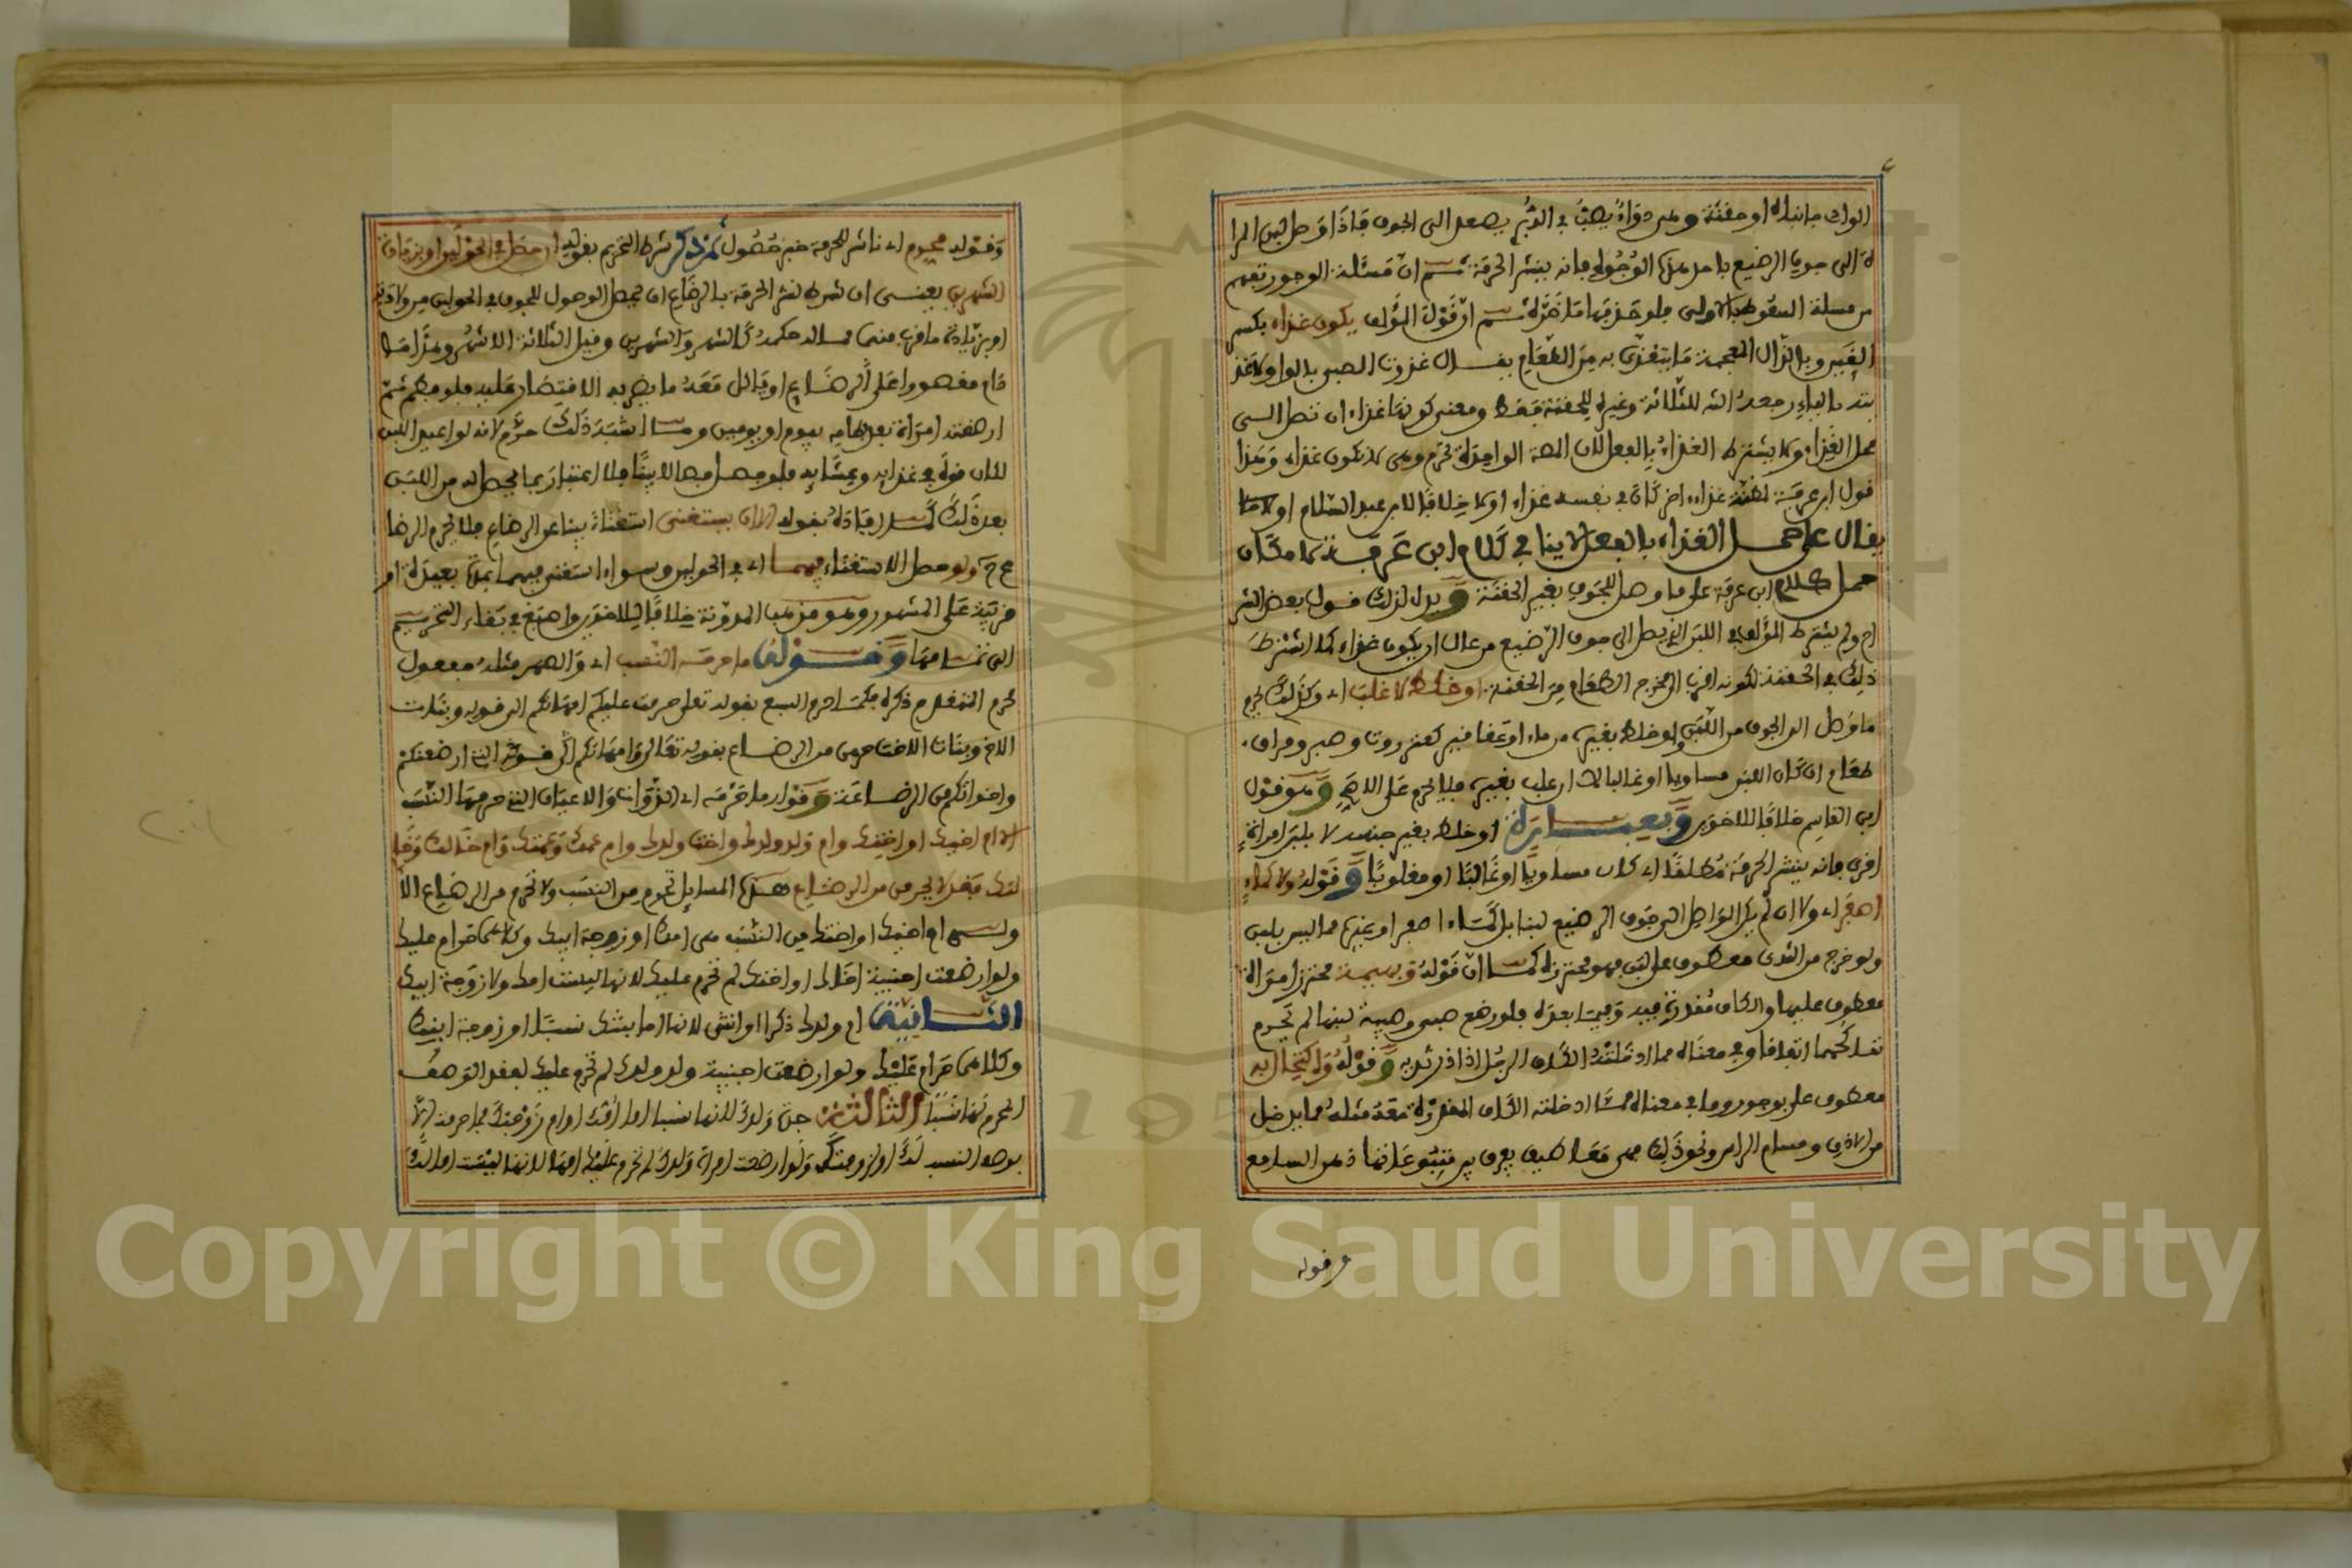 الواو ما انباه او حقنة وهى دواء يصب في الدبر يصعد الى الجوف فاذا وصل لبن المرا
ة الى جوف الرضيع باحد هذه الوجوه فانه ينشر الحرمة ثم ان مسئلة الوجور تفهم
من مسلة السعوط بالاولى فلو حذفها ما ضره ثم ان قول المؤلف يكون غذاء بكسر
الغين وبالذال المعجمة ما يتغذى به من الطعام يقال غذوت الصبى بالواو لا غذ
يته بالياء رجعه الشـ للثلاثة وغيره للحقنة فقط ومعنى كونها غذاء ان تصل الى
محل الغذاء ولا يشترط الغذاء بالفعل لان المصة الواحدة تحرم وهى لا تكون غذاء وهذا
قول ابن عرفة لحقنة غذاء اخر كان في نفسه غذاء اولا خلافا لابن عبد السلام او لا
يقال على حمل الغذاء بالفعل لا ينافي كلام ابن عرفة لامكان
حمل كلام ابن عرفة على ما وصل للجوف بغير الحقنة ويدل لذلك قول بعض الشر
اح ولم يشترط المؤلف في اللبن الذي يصل الى جوف الرضيع من عال ان يكون غذاء كما اشترط
ذلك في الحقنة لكونه اقرب الى مخرج الطعام من الحقنة او خلط لا غلب اى وكذلك يحرم
ما وصل الى الجوف من اللبن ولو خلط بغيره من ماء او عقاقير كعنزروت وصبر ومراق
طعام ان كان اللبن مساويا او غالبا لا ان غلب بغيره فلا يحرم على الاصح وهو قول
ابن القاسم خلافا للاخوين وبعبارة او خلط بغير جنسه لا بلبن امراة
اخرى فانه ينشر الحرمة مطلقا اى كان مساويا او غالبا او مغلوبا وقوله ولا كماء
اصفر اى ولا ان لم يكن الواصل الى جوف الرضيع لبنا بل كماء اصفر او غيره مما ليس بلبن
ولو خرج من الثدى معطوف على لبن فهو محترزه كما ان قوله وبهيمة محترز امراة
معطوف عليها والكاف مقدرة فيه وفيما بعده فلو رضع صبى وصبية لبنها لم يحرم
تناكحهما اتفاقا وفي معناه مما ادخلته الكاف الرجل اذا در ثديه وقوله واكتحال به
معطوف على بوجور وما في معناه مما ادخلته الكاف المقدرة مقدمثله مما يدخل
من الاذن ومسام الراس ونحو ذلك
وقوله
وقوله محرم اى ناشر للحرمة خبر حصول ثم ذكر شرط التحريم بقوله ان حصل في الحولين او بزيادة
الشهرين يعنى ان شرط نشر الحرمة بالرضاع ان يحصل الوصول للجوف في الحولين من ولادته
او بزيادة ما قرب منهما مما له حكمه كالشهر والشهرين وقيل الثلاثة الاشهر وهذا ما
دام مقصورا على الرضاع او كان معه ما يضر به الاقتصار عليه فلو فطم ثم
ارضعته امراة بعد فطامه بيوم او يومين وما اشبه ذلك حرم لانه لو اعيد اللبن
لكان قوة في غذايه وعشايه فلو فصل فصالا بينا فلا اعتبار بما يحصل له من اللبن
بعد ذلك كما افاده بقوله الا ان يستغنى استغناء بينا عن الرضاع فلا يحرم الرضا
ع ح ولو حصل الاستغناء فيهما اى في الحولين وسواء استغنى فيهما بمدة بعيدة او
قريبة على المشهور وهو مذهب المدونة خلافا للاخوين واصبغ في بقاء التحريم
الى تمامهما وقوله ما حرمه النسب اى والصهر مثله مفعول
محرم المتقدم ذكره فكما حرم السبع بقوله تعلى حرمت عليكم امهاتكم الى قوله وبنات
الاخ وبنات الاخت حرمن من الرضاع بقوله تعالى وامهاتكم التى ارضعنكم
واخواتكم من الرضاعة وقوله ما حرمه اى الذوات والاعيان التى حرمها النسب
الا ام اخيك او اختك وام ولد ولدك واخت ولدك وام عمك وعمتك وام خالك وخا
لتك فقد لا يحرمن من الرضاع هذه المسايل تحرم من النسب ولا تحرم من الرضاع الا
ولى ام اخيك او اختك من النسب هى امك او زوجة ابيك وكلاهما حرام عليك
ولو ارضعت اجنبية اخاك او اختك لم تحرم عليك لانها ليست امك ولا زوجة ابيك
الثانية ام ولدك ذكرا او انثى لانها اما بنتك نسبا او زوجة ابنك
وكلاهما حرام عليك ولو ارضعت اجنبية ولد ولدك لم تحرم عليك لفقد الوصف
المحرم لها نسبا الثالثة جدة ولدك لانها نسبا اما امك او ام زوجتك
ولو ارضعت امراة ولدك لم تحرم عليك امها لانها ليست اما لك